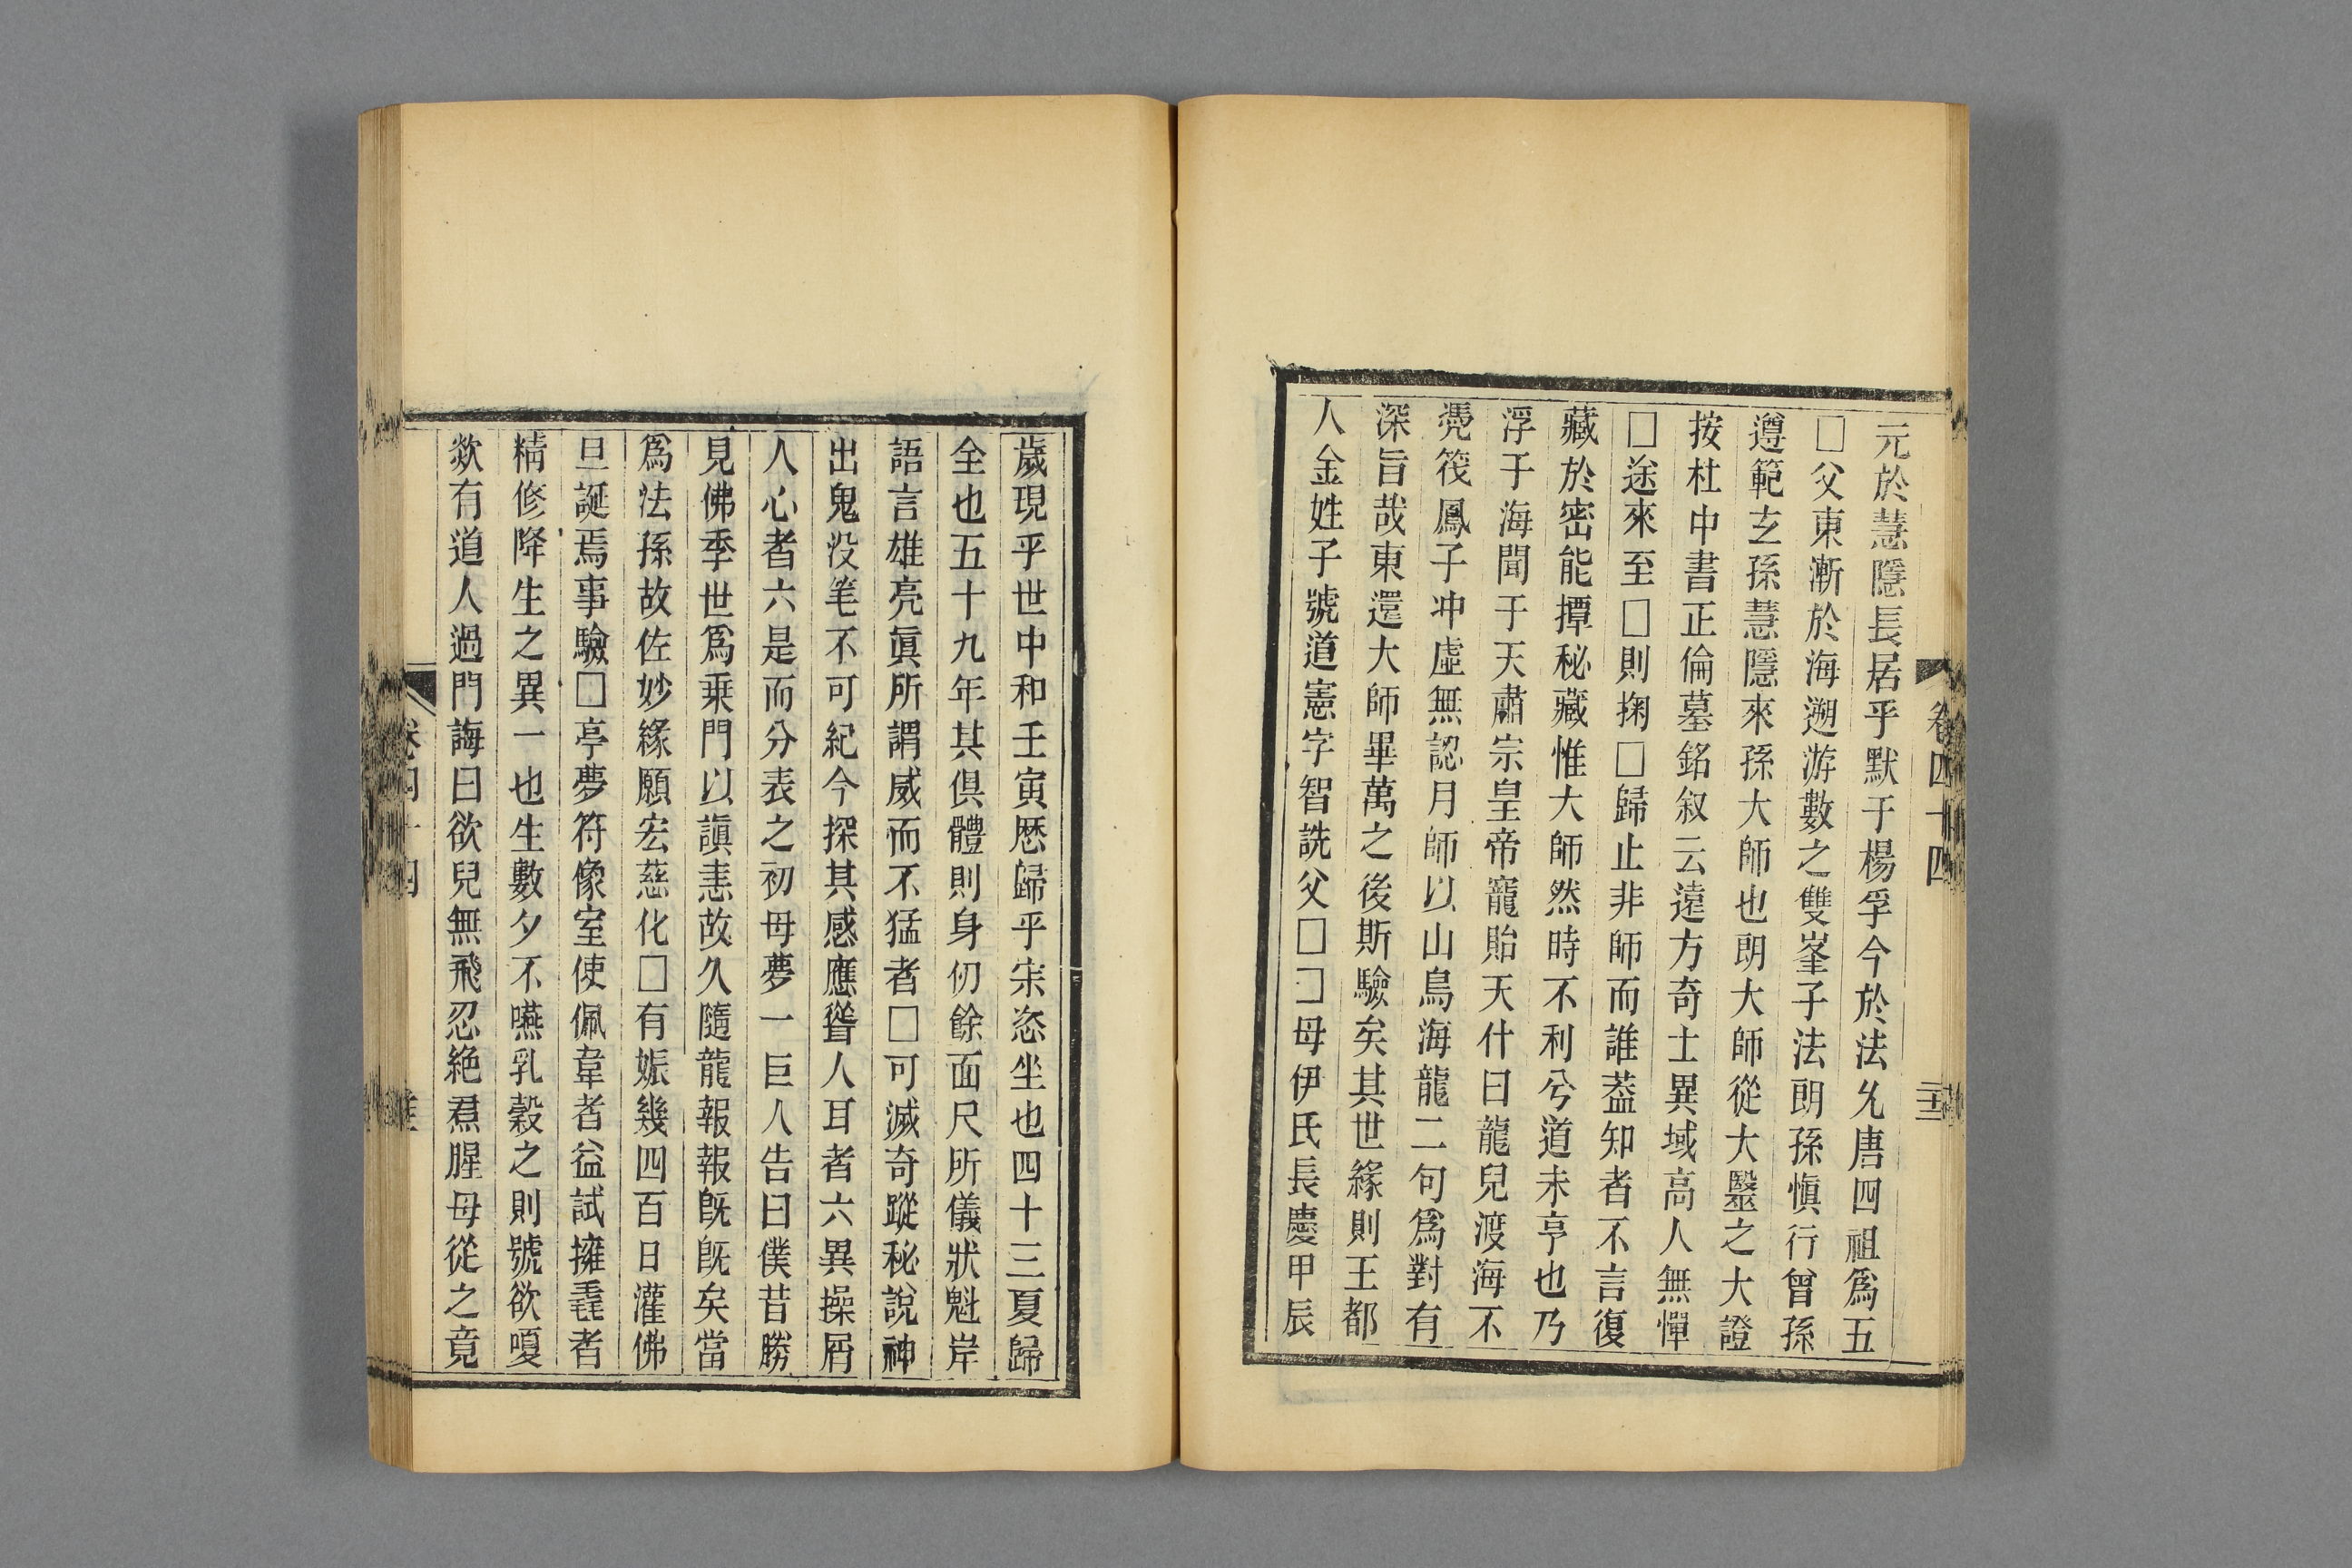 元於慧隱長居乎默于楊孚今於法允唐四祖爲五
□父東漸於海遡游數之雙峯子法朗孫愼行曾孫
遵範玄孫慧隱來孫大師也朗大師從大毉之大證
按杜中書正倫墓銘叙云遠方奇士異域高人無憚
□途來至□則掬□歸止非師而誰葢知者不言復
藏於密能撢秘藏惟大師然時不利兮道未亨也乃
浮于海聞于天肅宗皇帝寵貽天什曰龍兒渡海不
凴筏鳳子冲虛無認月師以山鳥海龍二句爲對有
深旨哉東還大師畢萬之後斯驗矣其世緣則王都
人金姓子號道憲字智詵父□□母伊氏長慶甲辰
卷四十四
歲現乎世中和壬寅厯歸乎宗恣坐也四十三夏歸
全也五十九年其倶體則身仞餘面尺所儀狀魁岸
語言雄亮眞所謂威而不猛者□可滅奇蹤秘說神
出鬼没笔不可紀今探其感應聳人耳者六異操屑
人心者六是而分表之初母夢一巨人告曰僕昔勝
見佛季世爲乗門以謓恚故久隨龍報報旣旣矣當
爲法孫故佐妙緣願宏慈化□有娠幾四百日灌佛
旦誕焉事驗□亭夢符像室使佩韋者益試擁毳者
精修降生之異一也生數夕不嚥乳穀之則號欲嗄
欻有道人過門誨曰欲兒無飛忍絶焄腥母從之竟